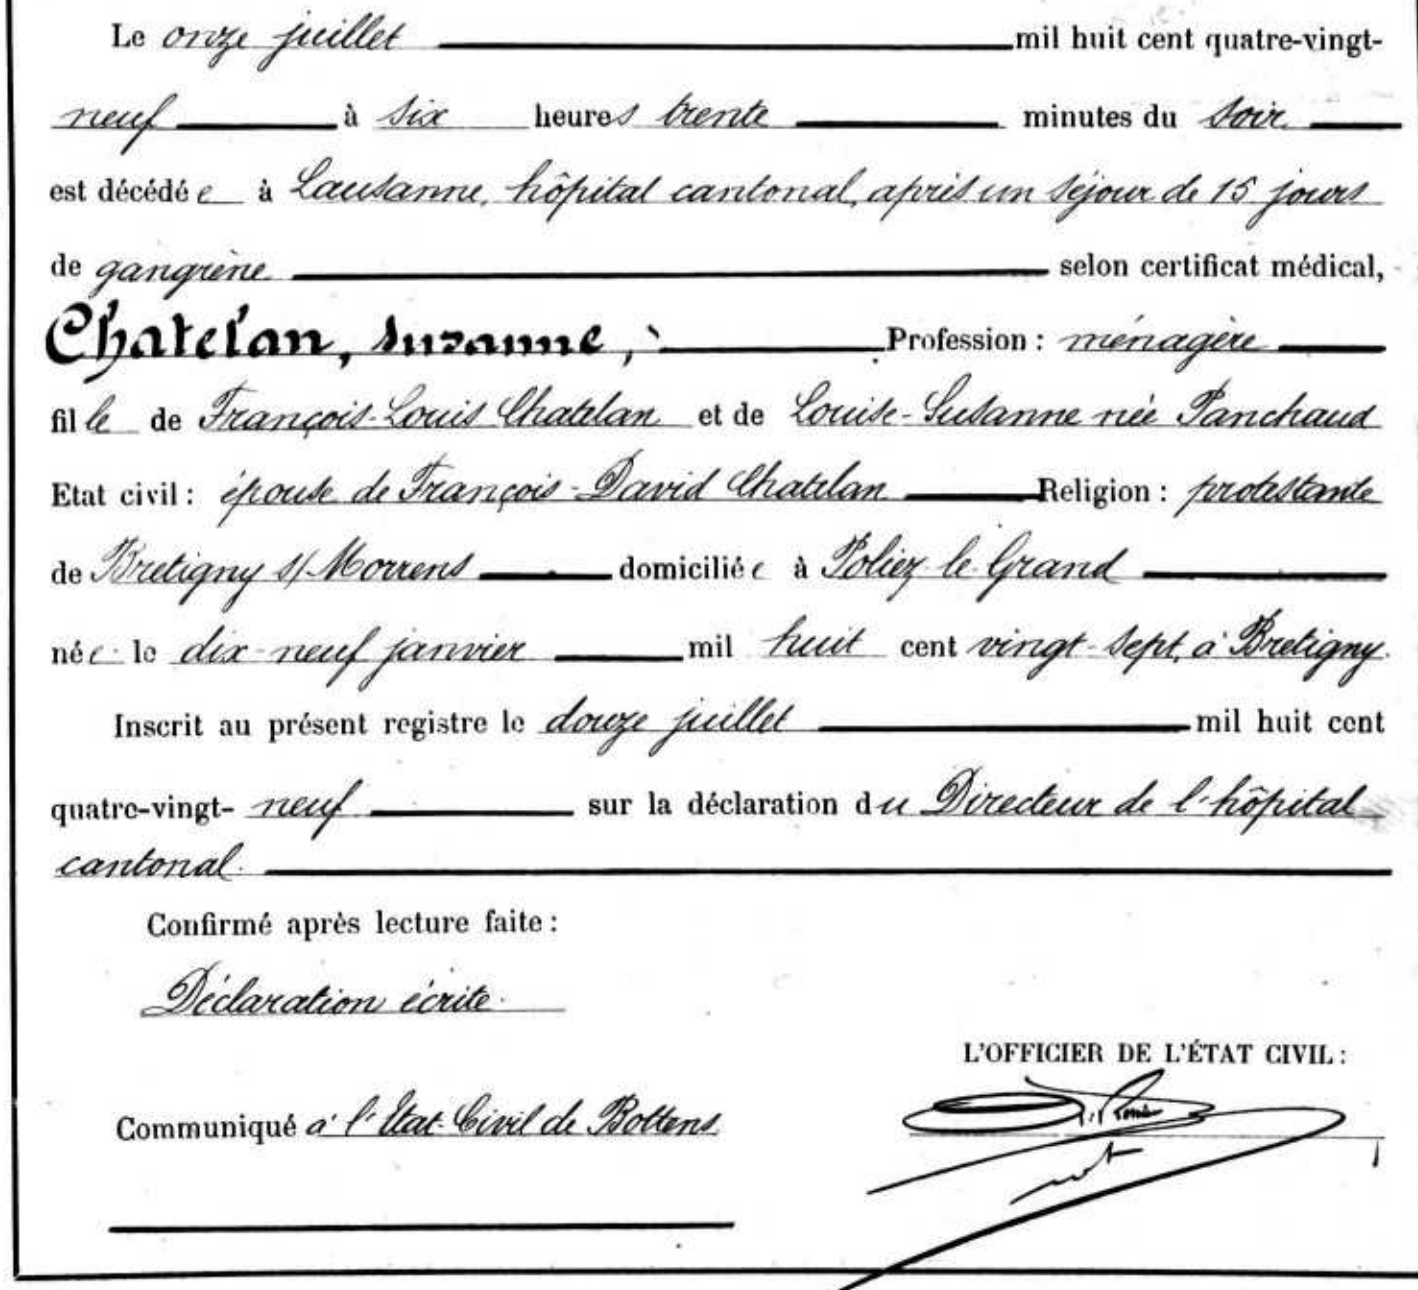 Le onze juillet mil huit cent quatre-vingt-
neuf à six heures trente minutes du soir
est décédée à Lausanne, hôpital cantonal, après un séjour de 15 jours
de gangrène selon certificat médical,
Chatelan, Suzanne, Profession : ménagère
fille de François-Louis Chatelan et de Louise-Susanne née Panchaud
Etat civil : épouse de François-David Chatelan Religion : protestante
de Bretigny s/ Morrens domiciliée à Poliez-le-Grand
née le dix-neuf janvier mil huit cent vingt-sept, à Bretigny.
Inscrit au présent registre le douze juillet mil huit cent
quatre-vingt-neuf sur la déclaration du Directeur de l'hôpital
cantonal.
Confirmé après lecture faite :
Déclaration écrite.
L'OFFICIER DE L'ÉTAT CIVIL :
Communiqué à l'État-Civil de Bottens